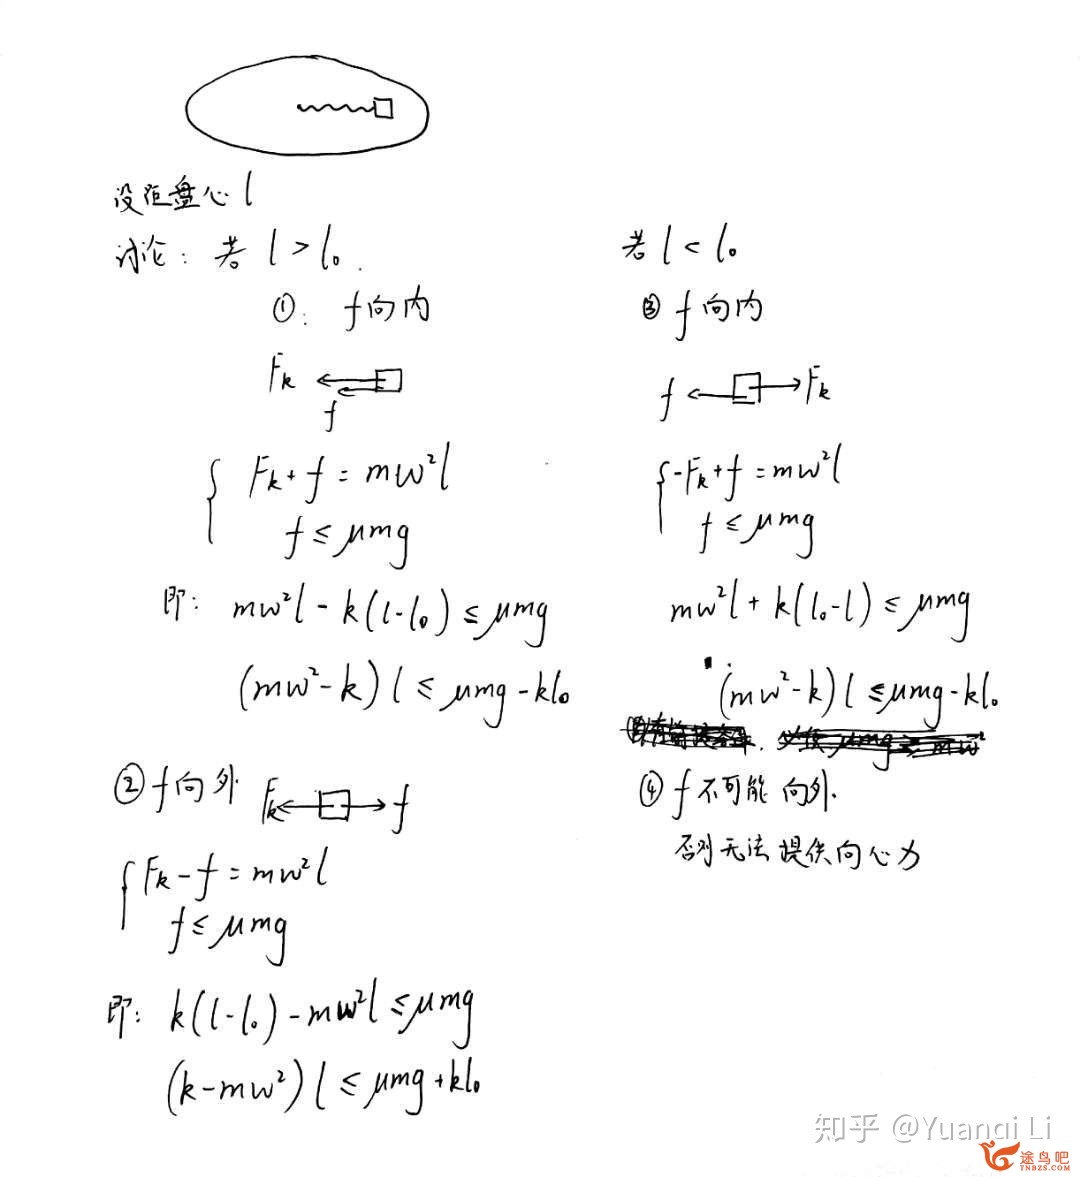 设距盘心 l
讨论: 若 l > l₀.
①: f向内
Fk
f
Fk + f = mω²l
f ≤ μmg
即: mω²l - k(l-l₀) ≤ μmg
(mω²-k) l ≤ μmg - kl₀
② f向外
Fk
f
Fk - f = mω²l
f ≤ μmg
即: k(l-l₀) - mω²l ≤ μmg
(k-mω²) l ≤ μmg + kl₀
若 l < l₀
③ f向内
f
Fk
-Fk + f = mω²l
f ≤ μmg
mω²l + k(l₀-l) ≤ μmg
(mω²-k) l ≤ μmg - kl₀
④ f不可能向外.
否则无法提供向心力
知乎 @Yuanqi Li
途鸟吧
TNBZS.COM